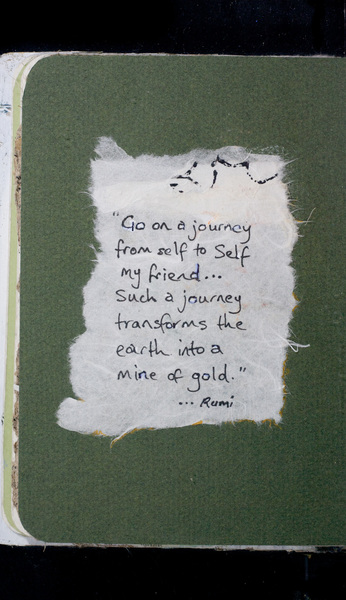 "Go on a journey
from self to Self
my friend...
Such a journey
transforms the
earth into a
mine of gold."
... Rumi